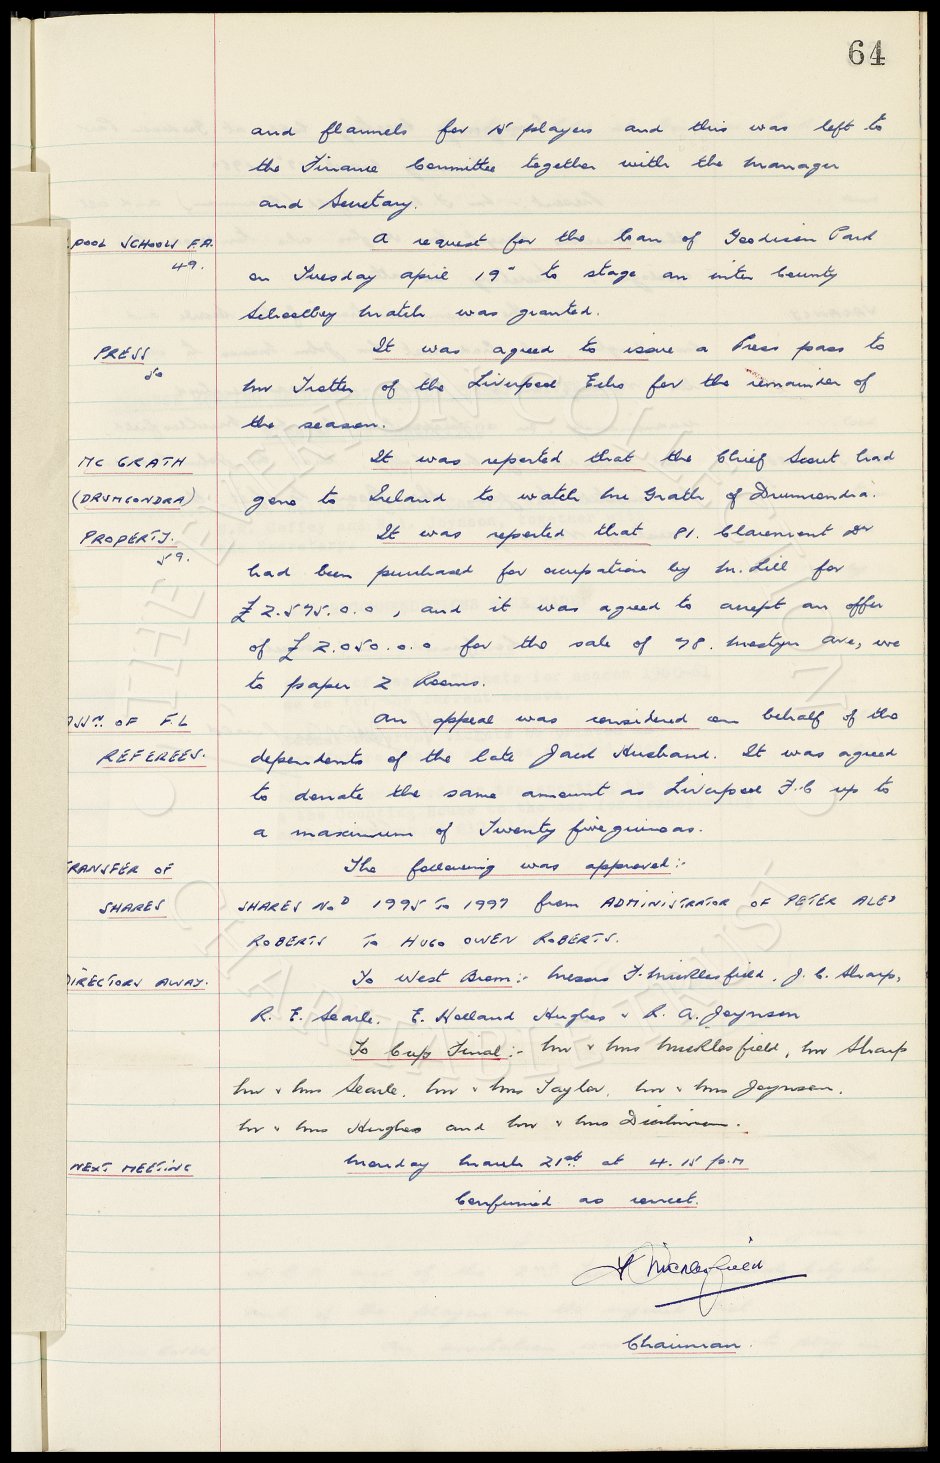 64
and flannels for 15 players and this was left to
the Finance Committee together with the Manager
and Secretary.
LPOOL SCHOOLS F.A. A request for the loan of Goodison Park
49. on Tuesday April 19th to stage an inter County
Schoolboy Match was granted.
PRESS It was agreed to issue a Press pass to
50 Mr Trotter of the Liverpool Echo for the remainder of
the season.
MC GRATH It was reported that the Chief Scout had
(DRUMCONDRA) gone to Ireland to watch McGrath of Drumcondra.
PROPERTY. It was reported that 81. Claremont Dr
59. had been purchased for occupation by Mr. Lill for
£2.575.0.0, and it was agreed to accept an offer
of £2.050.0.0 for the sale of 78. Mostyn Ave, we
to paper 2 Rooms.
ASSN. OF F.L An appeal was considered on behalf of the
REFEREES. dependents of the late Jack Husband. It was agreed
to donate the same amount as Liverpool F.C up to
a maximum of Twenty five guineas.
TRANSFER OF The following was approved:-
SHARES SHARES NoD 1995 TO 1997 from ADMINISTRATOR OF PETER ALED
ROBERTS TO HUGO OWEN ROBERTS.
DIRECTORS AWAY. To West Brom:- Messrs F. Micklesfield, J. C. Sharp,
R. E. Searle. E. Holland Hughes & R. A. Joynson
To Cup Final:- Mr & Mrs Micklesfield, Mr Sharp
Mr & Mrs Searle, Mr & Mrs Taylor, Mr & Mrs Joynson.
Mr & Mrs Hughes and Mr & Mrs Dickinson.
NEXT MEETING Monday March 21st at 4.15 p.m
Confirmed as correct.
F Micklesfield
Chairman.
THE EVERTON COLLECTION
CHARITABLE TRUST